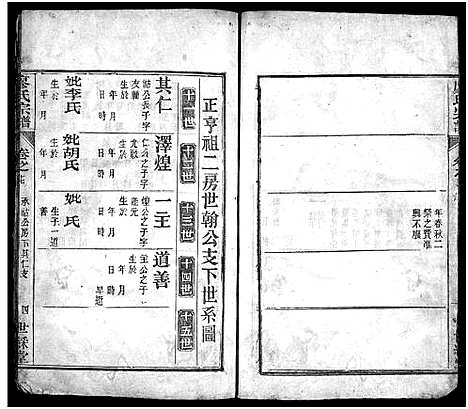 年春秋二
祭之費准
興不廢
正亨祖二房世翰公支下世系圖
十一世
十二世
十三世
十四世
十五世
其仁
公長子字
友
生於
年 月
日 時
妣李氏
生於
年 月
日 時
澤煌
仁公之子字
生於
年 月
日 時
妣胡氏
生於
年 月
一王
煌公之子字
生於
年 月
日 時
妣 氏
生子一道
善
道善
王公之子
生於
年 月
日 時
早逝
廖氏宗譜
卷之
承祜公房下其仁支
四
世綵堂